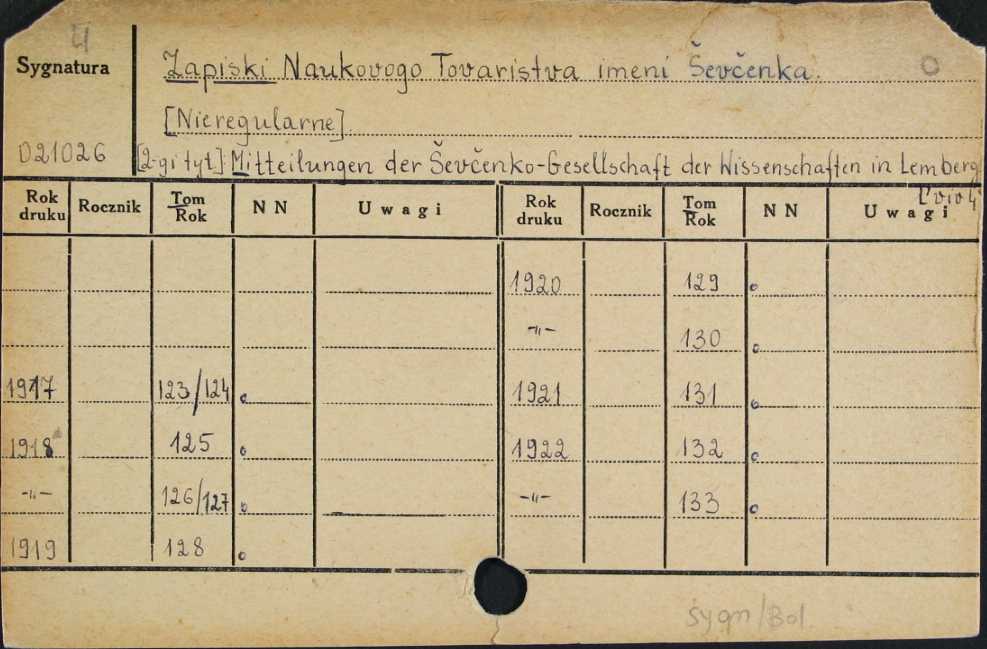 4
Sygnatura Zapiski Naukovogo Tovaristva imeni Ševčenka. O
[Nieregularne]
021026 [2-gi tyt]: Mitteilungen der Ševčenko-Gesellschaft der Wissenschaften in Lemberg
L'viv
Rok druku Rocznik Tom Rok N N Uwagi Rok druku Rocznik Tom Rok N N Uwagi
1920 129
-"- 130
1917 123/124 1921 131
1918 125 1922 132
-"- 126/127 -"- 133
1919 128
sygn/Bol.